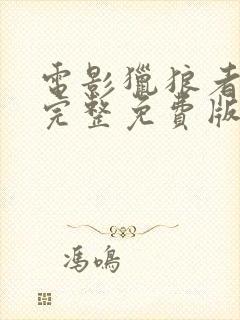 電影獵狼者
完整免費版
馮鳴